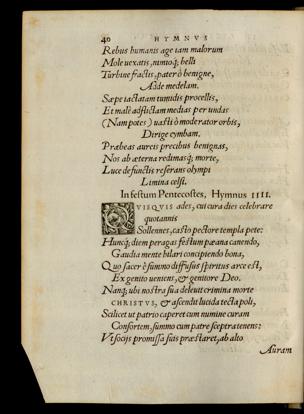 40 HYMNVS
Rebus humanis age iam malorum
Mole uexatis, nimioq́; belli
Turbine fractis, pater ô benigne,
Adde medelam.
Sæpe iactatam tumidis procellis,
Et malè adflictam medias per undas
(Nam potes) uasti ô moderator orbis,
Dirige cymbam.
Præbeas aureis precibus benignas,
Nos ab æterna redimasq́; morte,
Luce defunctis reserans olympi
Limina celsi.
In festum Pentecostes, Hymnus IIII.
QVISQVIS ades, cui cura dies celebrare
quotannis
Sollennes, casto pectore templa pete:
Huncq́; diem peragas festum pæana canendo,
Gaudia mente hilari concipiendo bona,
Quo sacer è summo diffusus spiritus arce est,
Ex genito ueniens, & genitore Deo.
Nanq́; ubi nostra sua deleuit crimina morte
CHRISTVS, & ascendit lucida tecta poli,
Scilicet ut patrio caperet cum numine curam
Consortem, summo cum patre sceptra tenens:
Vt socijs promissa suis præstaret, ab alto
Auram